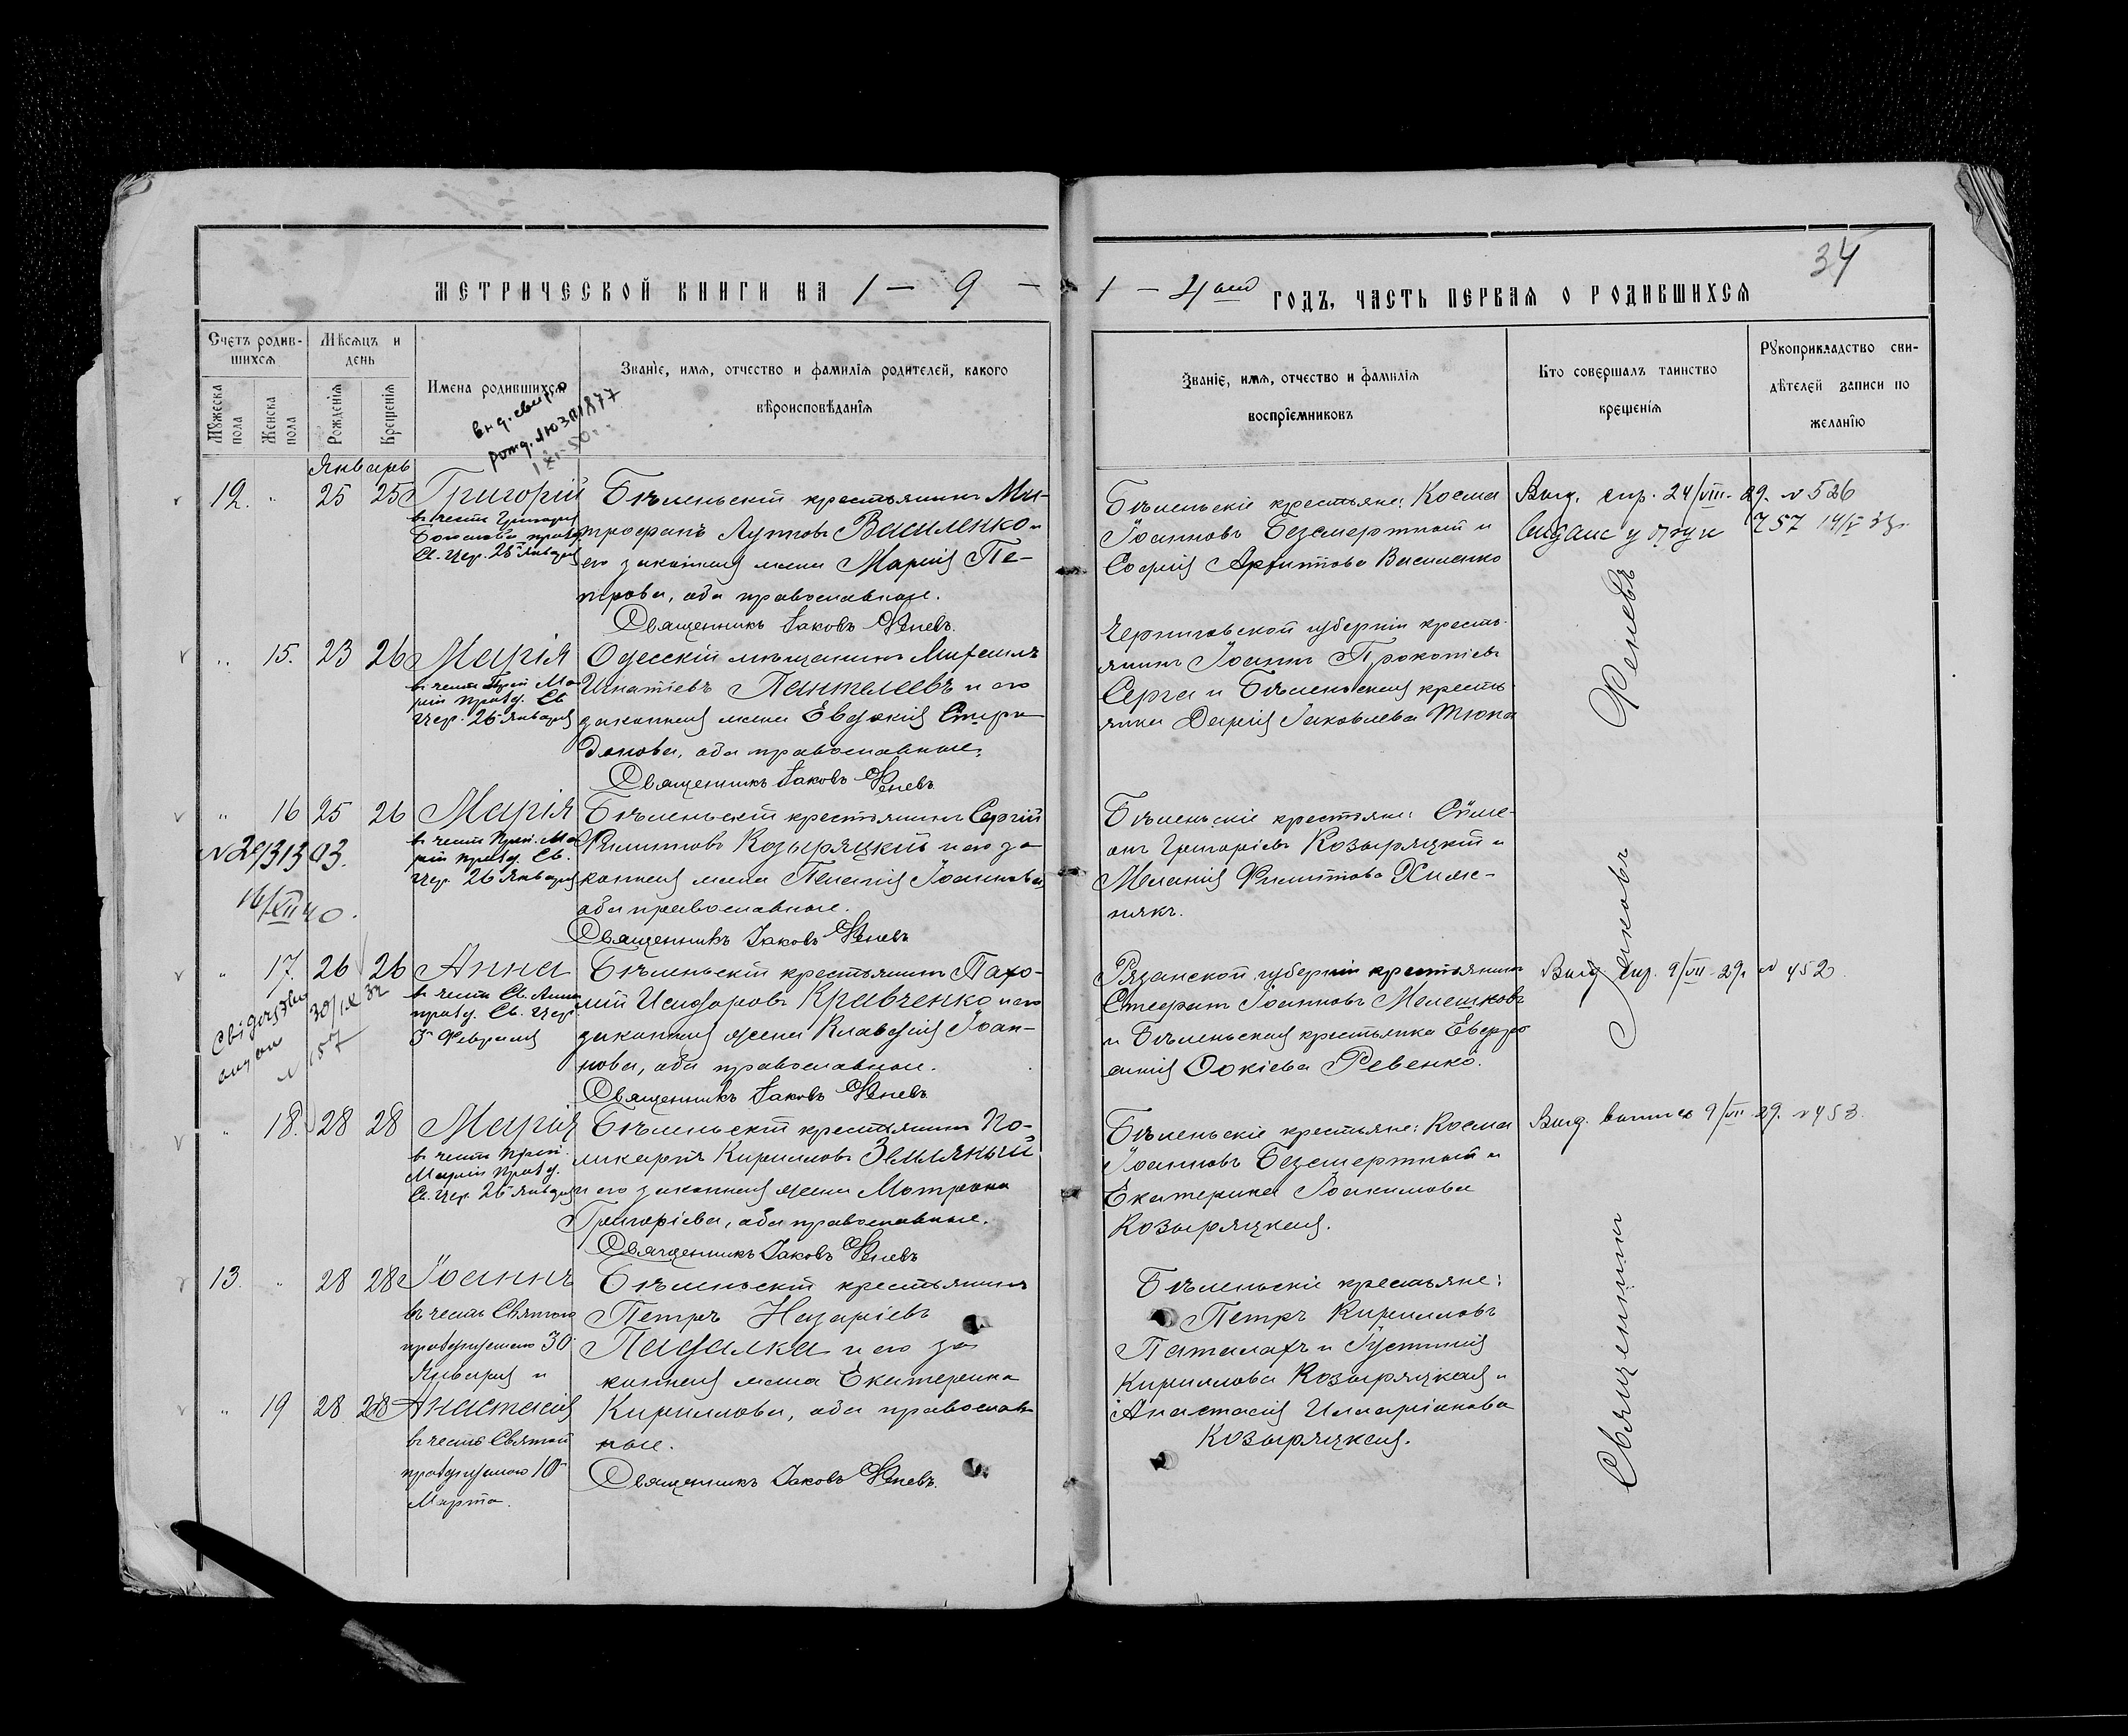 34
МЕТРИЧЕСКОЙ КНИГИ НА 1 — 9 —
1 — 4 ый ГОДЪ, ЧАСТЬ ПЕРВАЯ О РОДИВШИХСЯ
Счетъ родив-
шихся
Мѣсяцъ и
день
Имена родившихся
Званіе, имя, отчество и фамилія родителей, какого
вѣроисповѣданія
Мужеска
пола
Женска
пола
Рожденія
Крещенія
Званіе, имя, отчество и фамилія
воспріемниковъ
Кто совершалъ таинство
крещенія
Рукоприкладство сви-
дѣтелей записи по
желанію
Январь
12. " 25 25 Григорій
въ честь Григорія
Богослова
Св. Цер. 25 Января
Бѣленьскій крестьянинъ Ми-
трофанъ Василенко и
его законная жена Марія Пе-
трова, оба православные.
Священникъ Іаковъ Феневъ.
Бѣленьскіе крестьяне: Косма
Іоанновъ Безсмертный и
Софія Василенко
Выд. спр. 24/VIII-29. № 526
757
" 15. 23 26 Марія
въ честь Преп. Ма-
ріи празд. Св.
Цер. 26 Января
Одесскій мѣщанинъ Михаилъ
Игнатіевъ Пантелеевъ и его
законная жена Евдокія Спири-
донова, оба православные.
Священникъ Іаковъ Феневъ
Черниговской губерніи кресть-
янинъ Іоаннъ Прокопіевъ
Серга и Бѣленьская кресть-
янка Дарія Іаковлева Тюпа
" 16 25 26 Марія
въ честь Преп. Ма-
ріи празд. Св.
Цер. 26 Января
16/XII 40.
Бѣленьскій крестьянинъ Сергій
Филипповъ Козыряцкій и его за-
конная жена Пелагія Іоаннова,
оба православные.
Священникъ Іаковъ Феневъ
Бѣленьскіе крестьяне: Симе-
онъ Григоріевъ Козыряцкій и
Меланія Филиппова Химе-
някъ.
" 17. 26 26 Анна
въ честь Св. Анны
празд. Св. Цер.
3 Февраля
30/IX 32
№ 157
Бѣленьскій крестьянинъ Пахо-
мій Исидоровъ Кравченко и его
законная жена Клавдія Іоан-
нова, оба православные.
Священникъ Іаковъ Феневъ
Рязанской губерніи крестьянинъ
Стефанъ Іоанновъ Мелешковъ
и Бѣленьская крестьянка Евфро-
синія Ревенко.
Выд. спр. 9/VII-29. № 452
" 18. 28 28 Марія
въ честь Преп.
Маріи празд.
Св. Цер. 26 Января
Бѣленьскій крестьянинъ По-
ликарпъ Кирилловъ Земляный
и его законная жена Матрона
Григоріева, оба православные.
Священникъ Іаковъ Феневъ
Бѣленьскіе крестьяне: Косма
Іоанновъ Безсмертный и
Екатерина Іоакимова
Козыряцкая.
Выд. выпись 9/VII-29. № 453.
13. " 28 28 Іоаннъ
въ честь Святого
празднуемаго 30
Января и
" 19 28 28 Анастасія
въ честь Святой
празднуемой 10
Марта.
Бѣленьскій крестьянинъ
Петръ Назаріевъ
Падалка и его за-
конная жена Екатерина
Кириллова, оба православ-
ные.
Священникъ Іаковъ Феневъ.
Бѣленьскіе крестьяне:
Петръ Кирилловъ
Паталахъ и Іустинія
Кириллова Козыряцкая и
Анастасія Илларіонова
Козыряцкая.
Священникъ Іаковъ Феневъ